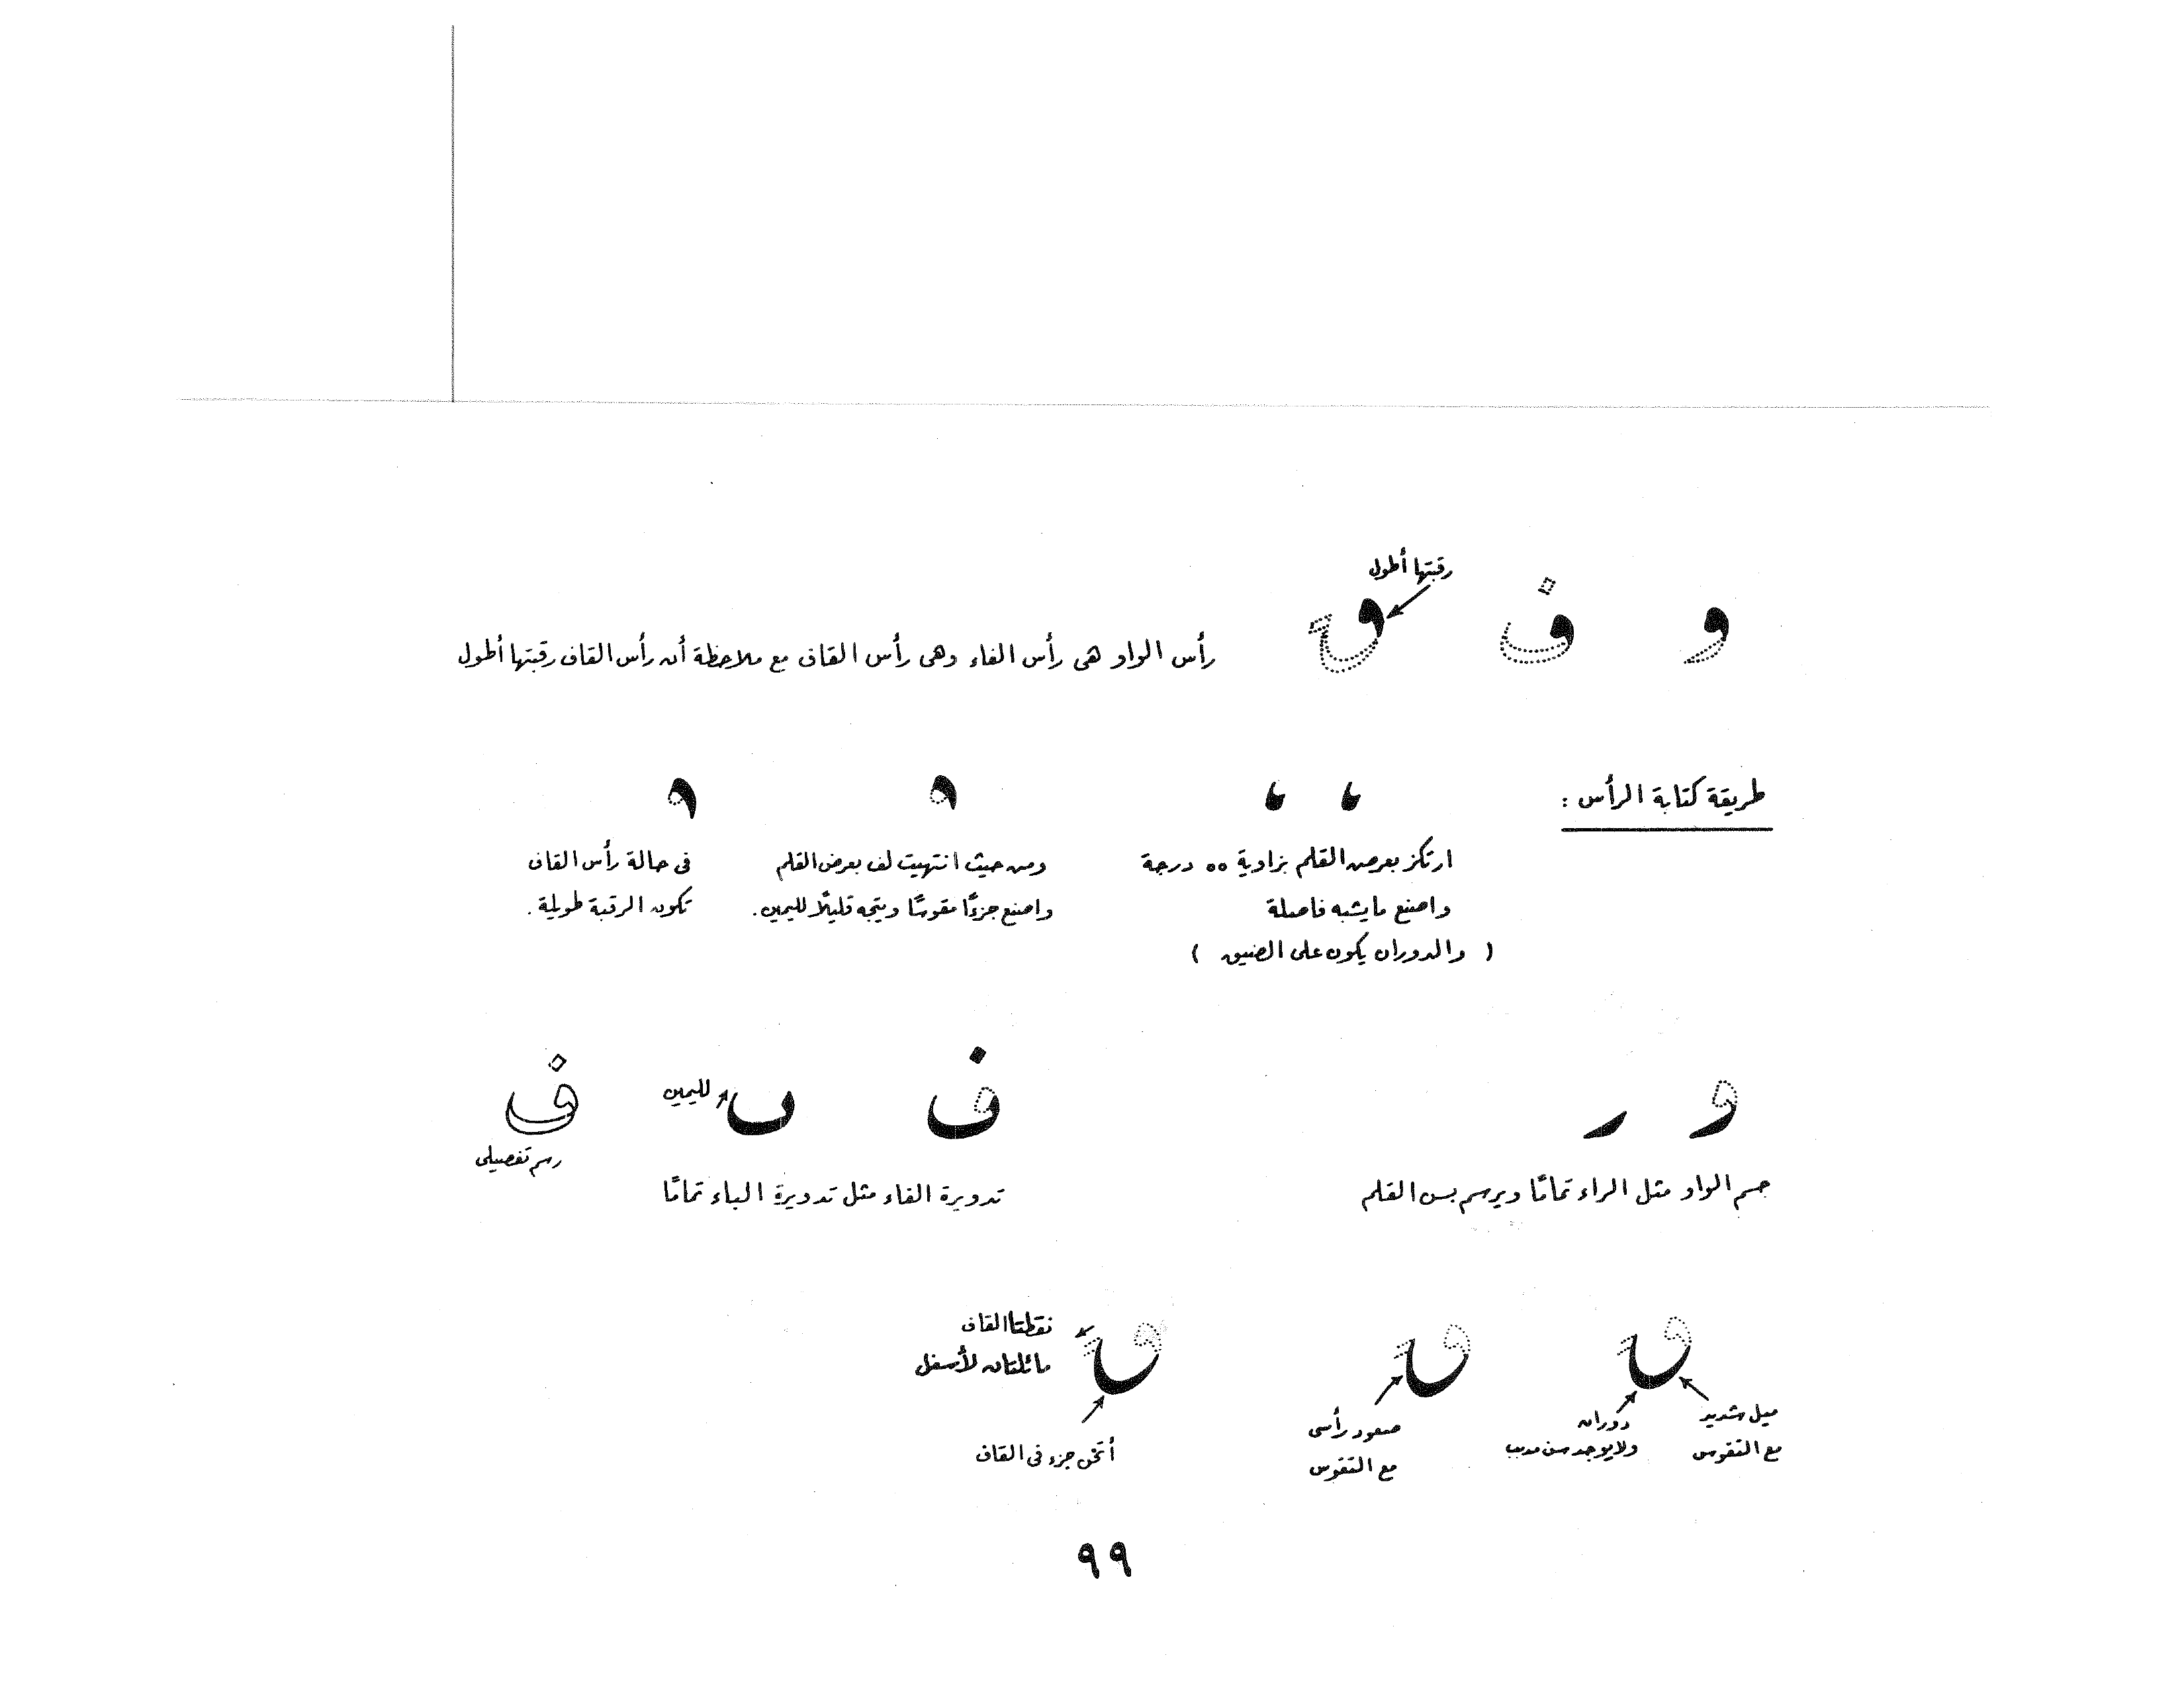 رقبتها أطول
و ف ق
رأس الواو هى رأس الفاء وهى رأس القاف مع ملاحظة أن رأس القاف رقبتها أطول
طريقة كتابة الرأس :
ارتكز بعرض القلم بزاوية ٥٥ درجة
واصنع مايشبه فاصلة
( والدوران يكون على الضيق )
ومن حيث انتهيت لف بعرض القلم
واصنع جزءًا مقوسًا ويتجه قليلًا لليمين.
فى حالة رأس القاف
تكون الرقبة طويلة .
و ر
جسم الواو مثل الراء تمامًا ويرسم بسن القلم
ف
لليمين
ف
رسم تفصيلى
تدويرة الفاء مثل تدويرة الباء تمامًا
ق
ميل شديد
مع التقوس
دوران
ولايوجد سن مدبب
ق
صعود رأسى
مع التقوس
ق
نقطتا القاف
مائلتان لأسفل
أثخن جزء فى القاف
٩٩